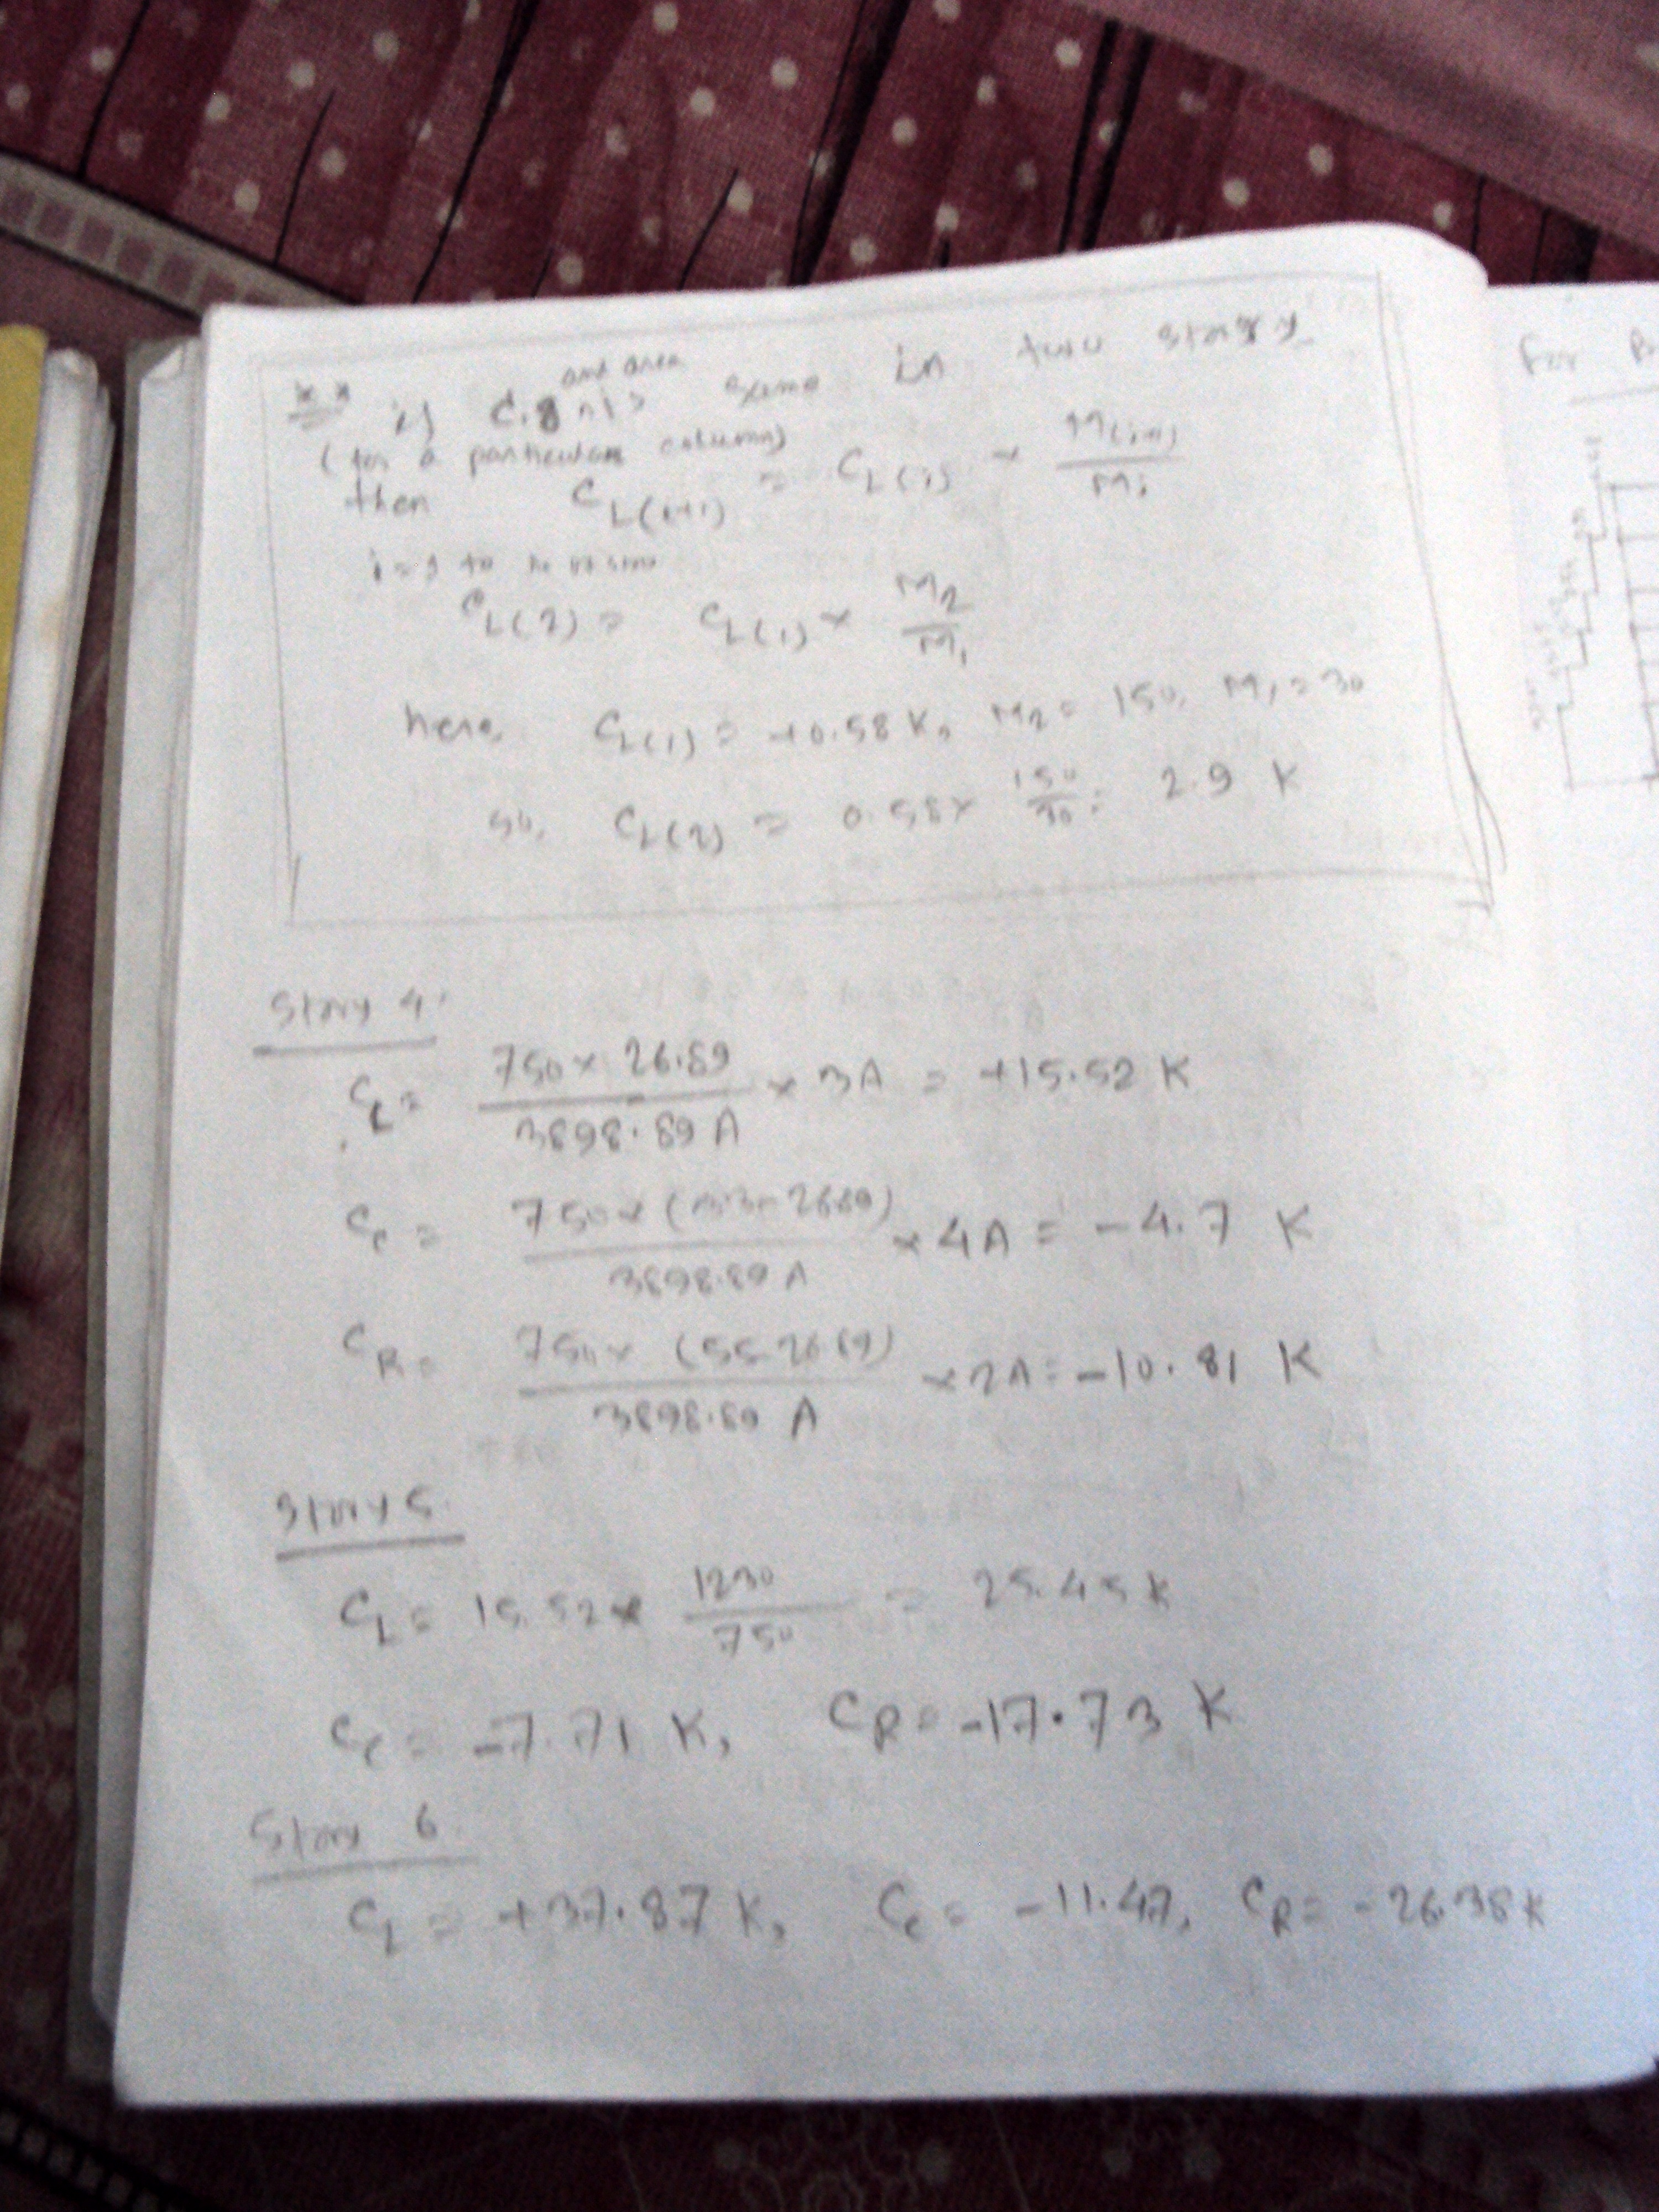 ** if C.g and area is same in two storey
(for a particular column)
then C_L(i+1) = C_L(i) × M(i+1)/Mi
i = 1 to
C_L(2) = C_L(1) × M2/M1
here, C_L(1) = +0.58 K, M2 = 150, M1 = 30
so, C_L(2) = 0.58 × 150/30 = 2.9 K
Story 4:
C_L = 750 × 26.89/3898.89 A × 3A = +15.52 K
C_c = 750 × (33-26.89)/3898.89 A × 4A = -4.7 K
C_R = 750 × (55-26.89)/3898.89 A × 2A = -10.81 K
Story 5.
C_L = 15.52 × 1230/750 = 25.45 K
C_c = -7.71 K, C_R = -17.73 K
Story 6.
C_L = +37.87 K, C_c = -11.47, C_R = -26.38 K
For